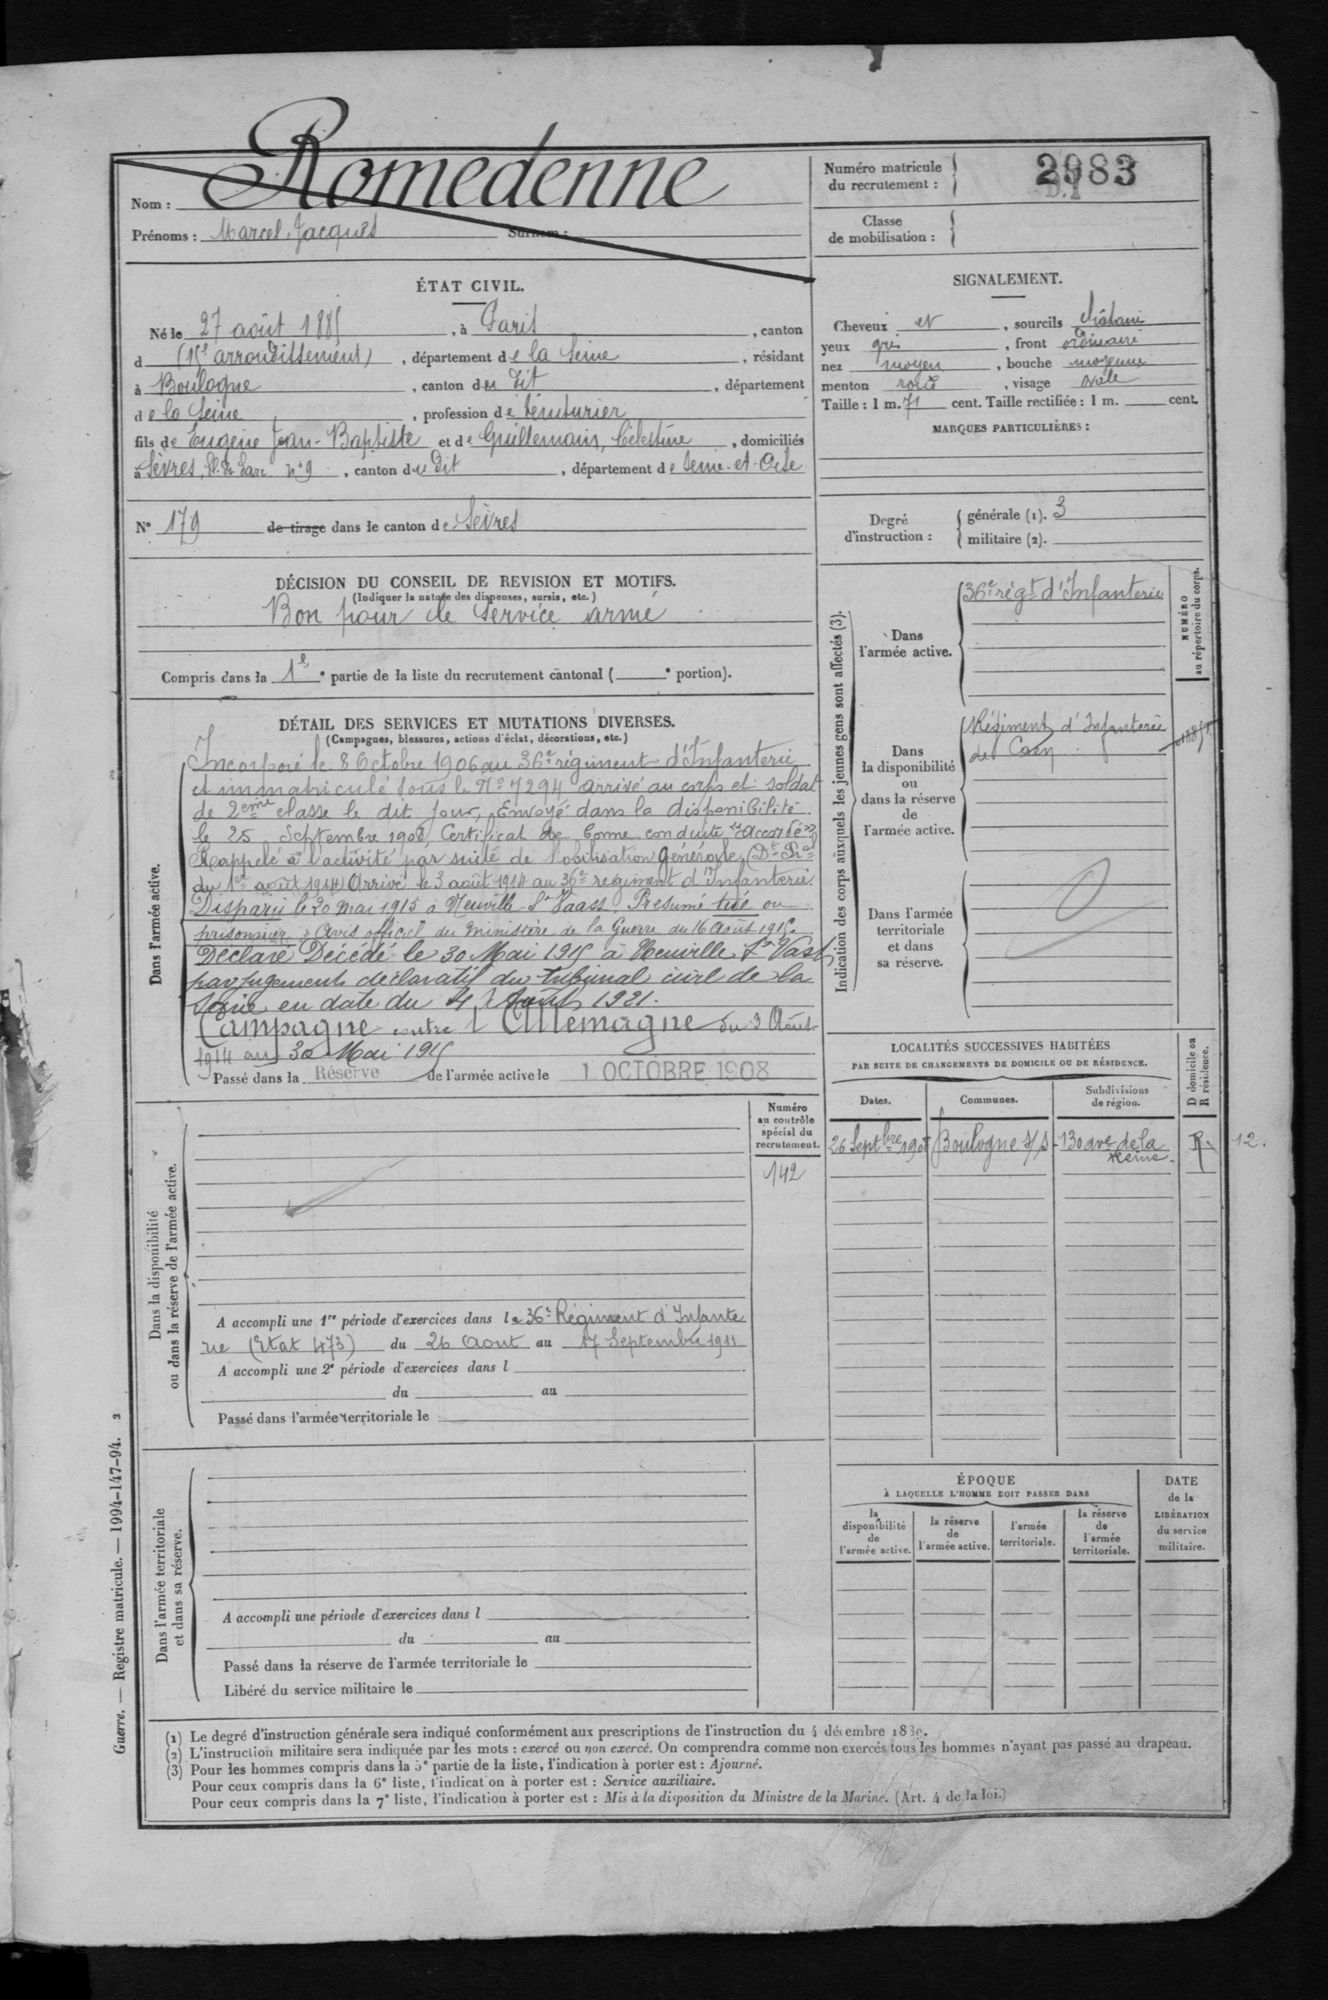 Romedenne
Nom :
Prénoms : Marcel, Jacques Surnom :
Numéro matricule du recrutement : 2983
Classe de mobilisation :
ÉTAT CIVIL.
Né le 27 août 1885, à Paris, canton
d (15e arrondissement), département de la Seine, résidant
à Boulogne, canton du dit, département
de la Seine, profession de teinturier
fils de Eugène Jean-Baptiste et de Guillemain, Célestine, domiciliés
à Sèvres, n° 9, canton du dit, département de Seine-et-Oise
N° 179 de tirage dans le canton de Sèvres
SIGNALEMENT.
Cheveux et, sourcils châtain
yeux gris, front ordinaire
nez moyen, bouche moyenne
menton rond, visage ovale
Taille : 1 m. 71 cent. Taille rectifiée : 1 m. cent.
MARQUES PARTICULIÈRES :
Degré d'instruction : générale (1). 3
militaire (2).
DÉCISION DU CONSEIL DE REVISION ET MOTIFS.
(Indiquer la nature des dispenses, sursis, etc.)
Bon pour le service armé
Compris dans la 1e partie de la liste du recrutement cantonal ( e portion).
DÉTAIL DES SERVICES ET MUTATIONS DIVERSES.
(Campagnes, blessures, actions d'éclat, décorations, etc.)
Dans l'armée active.
Incorporé le 8 Octobre 1906 au 36e régiment d'Infanterie
et immatriculé sous le N° 7294 arrivé au corps et soldat
de 2ème classe le dit jour, Envoyé dans la disponibilité
le 25 Septembre 1908, Certificat de bonne conduite "Accordé"
Rappelé à l'activité par suite de Mobilisation Générale (Dt Pal
du 1er août 1914) Arrivé le 3 août 1914 au 36e régiment d'Infanterie
Disparu le 20 mai 1915 à Neuville St Vaass. Présumé tué ou
prisonnier. Avis officiel du ministère de la Guerre du 16 Août 1915.
Déclaré Décédé le 30 Mai 1915 à Neuville St Vast
par jugement déclaratif du tribunal civil de la
Seine en date du 4 Août 1921.
Campagne contre l'Allemagne du 3 Août
1914 au 30 Mai 1915
Passé dans la Réserve de l'armée active le 1 OCTOBRE 1908
Indication des corps auxquels les jeunes gens sont affectés (3).
NUMÉRO au répertoire du corps.
Dans l'armée active.
36e régt d'Infanterie
Dans la disponibilité ou dans la réserve de l'armée active.
Régiment d'Infanterie
de Caen
Dans l'armée territoriale et dans sa réserve.
LOCALITÉS SUCCESSIVES HABITÉES
PAR SUITE DE CHANGEMENTS DE DOMICILE OU DE RÉSIDENCE.
D domicile ou R résidence.
Dates. Communes. Subdivisions de région.
26 Septbre 1908 Boulogne s/S - 130 ave de la Reine - R. 12.
Dans la disponibilité ou dans la réserve de l'armée active.
Numéro au contrôle spécial du recrutement.
142
A accompli une 1re période d'exercices dans le 36e Régiment d'Infante
rie (Etat 473) du 26 Aout au 17 Septembre 1911
A accompli une 2e période d'exercices dans l
du au
Passé dans l'armée territoriale le
Dans l'armée territoriale et dans sa réserve.
A accompli une période d'exercices dans l
du au
Passé dans la réserve de l'armée territoriale le
Libéré du service militaire le
ÉPOQUE
À LAQUELLE L'HOMME DOIT PASSER DANS
la disponibilité de l'armée active.
la réserve de l'armée active.
l'armée territoriale.
la réserve de l'armée territoriale.
DATE de la LIBÉRATION du service militaire.
Guerre. — Registre matricule. — 1994-147-94.
(1) Le degré d'instruction générale sera indiqué conformément aux prescriptions de l'instruction du 4 décembre 1889.
(2) L'instruction militaire sera indiquée par les mots : exercé ou non exercé. On comprendra comme non exercés tous les hommes n'ayant pas passé au drapeau.
(3) Pour les hommes compris dans la 5e partie de la liste, l'indication à porter est : Ajourné.
Pour ceux compris dans la 6e liste, l'indication à porter est : Service auxiliaire.
Pour ceux compris dans la 7e liste, l'indication à porter est : Mis à la disposition du Ministre de la Marine. (Art. 4 de la loi.)